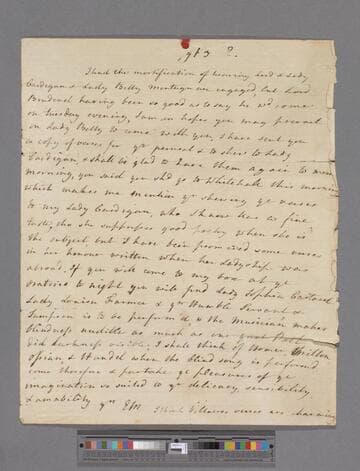 I had the mortification of hearing Lord & Lady
Cardigan & Lady Betty Montagu are engaged, but Lord
Brudenel having been so good as to say he wd come
on tuesday evening, I am in hopes you may prevail
on Lady Betty to come with you, I have sent you
a copy of verses for yr perusal & to shew to Lady
Cardigan, & shall be glad to have them again to morrow
morning, you said you shd go to Whitehall this morning
which makes me mention yr shewing yr verses
to my Lady Cardigan, who I know has as fine
taste, tho she suppresses good poetry when she is
the subject, but I have been promised some verses
in her honour written when her Ladyship was
abroad. If you will come to my box at ye
oratorio to night you will find Lady Sophia Carteret
Lady Louisa Farmer & yr Humble Servant &
Sampson is to be perform'd & the Musician makes
blindness audible as much as our great Poet
did darkness visible, I shall think of Homer Milton
Ossian, & Handel when the blind song is perform'd
come therefore & partake ye pleasures of ye
imagination so suited to yr delicacy, sensibility
& amability yrs EM
verses are charming